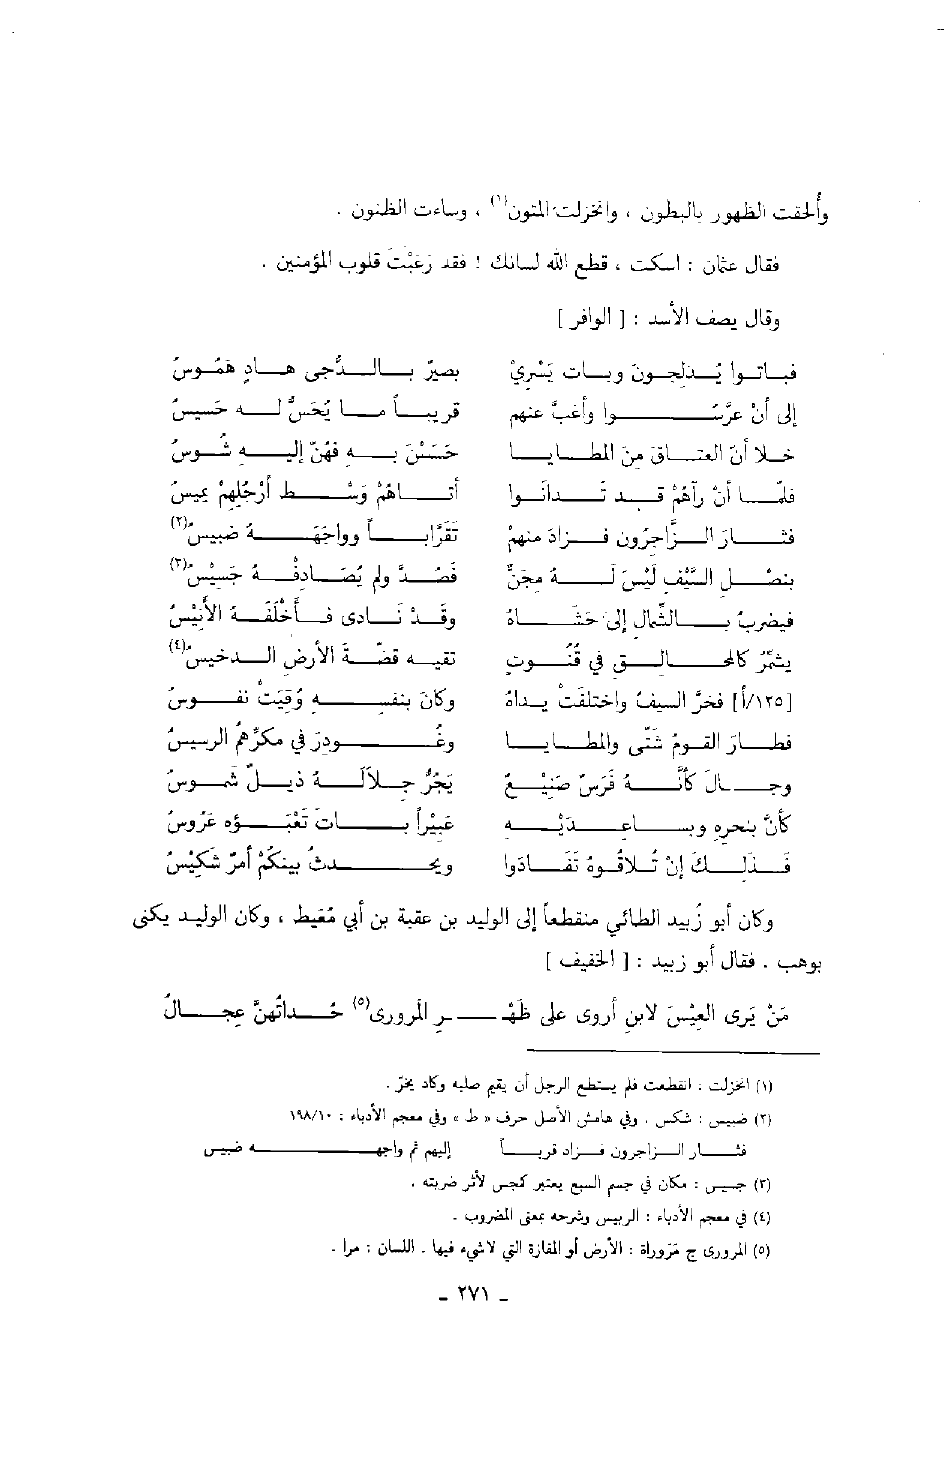 وألحقت الظهور بالبطون ، وانخزلت المتون(١) ، وساءت الظنون .
فقال عثمان : اسكت ، قطع الله لسانك ! فقد رَعَبْتَ قلوب المؤمنين .
وقال يصف الأسد : [ الوافر ]
فباتوا يُدلجون وبات يَسْريْ بصيرٌ بالدُّجى هادٍ هَمُوسُ
إلى أنْ عرَّسُوا وأغبَّ عنهم قريباً ما يُحَسُّ له حَسيسُ
خلا أنّ العتاق منَ المطايا حَسَسْنَ به فهُنّ إليه شُوسُ
فلمّا أنْ رآهُمْ قد تَدانَوا أتاهُمْ وَسْط أرْجُلِهِمْ يميسُ
فثارَ الزَّاجرُون فزادَ منهمْ تَقَرَّاباً وواجَهَهُ ضبيسُ(٢)
بنصْلِ السَّيْفِ لَيْسَ لَهُ مِجَنٌّ فَصَدَّ ولم يُصَادِفْهُ جَسِيْسُ(٣)
فيضربُ بالشِّمال إلى حَشَاهُ وقَدْ نَادى فأخْلَفَهُ الأنِيْسُ
يشمّرُ كالمحالق في قُنُوتٍ تقيه قضّةَ الأرضِ الدخيسُ(٤)
[١٢٥/أ] فخرَّ السيفُ واختلفَتْ يداهُ وكانَ بنفسِهِ وُقِيَتْ نفوسُ
فطارَ القومُ شتّى والمطايا وغُودِرَ في مكرِّهمُ الرسيسُ
وجالَ كأنّهُ فَرَسٌ صَنِيْعٌ يَجُرُّ جِلالَهُ ذيلٌ شَموسُ
كأنَّ بنحرِهِ وبساعِدَيْهِ عَبِيْراً باتَ تَعْبَؤه عَرُوسُ
فَذلكَ إنْ تُلاقُوهُ تَفَادَوا ويحدثُ بينكُمْ أمرٌ شَكِيْسُ
وكان أبو زُبيد الطائي منقطعاً إلى الوليد بن عقبة بن أبي مُعَيط ، وكان الوليد يكنى
بوهب . فقال أبو زبيد : [ الخفيف ]
مَنْ يَرى العِيْسَ لابنِ أروى على ظَهْرِ المَرورى(٥) حُداتُهنَّ عِجالُ
(١) انخزلت : انقطعت فلم يستطع الرجل أن يقيم صلبه وكاد يخرّ .
(٢) ضبيس : شكس . وفي هامش الأصل حرف « ط » وفي معجم الأدباء : ١٩٨/١٠
فثار الزاجرون فزاد قرباً إليهم ثم واجهه ضبيس
(٣) جسيس : مكان في جسم السبع يعتبر كمجس لأثر ضربته .
(٤) في معجم الأدباء : الربيس وشرحه بمعنى المضروب .
(٥) المرورى ج مَرَوراة : الأرض أو المفازة التي لا شيء فيها . اللسان : مرا .
ـ ٢٧١ ـ